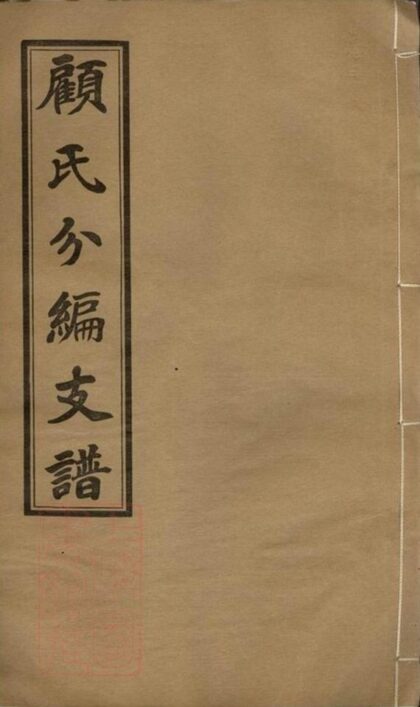 顧氏分編支譜